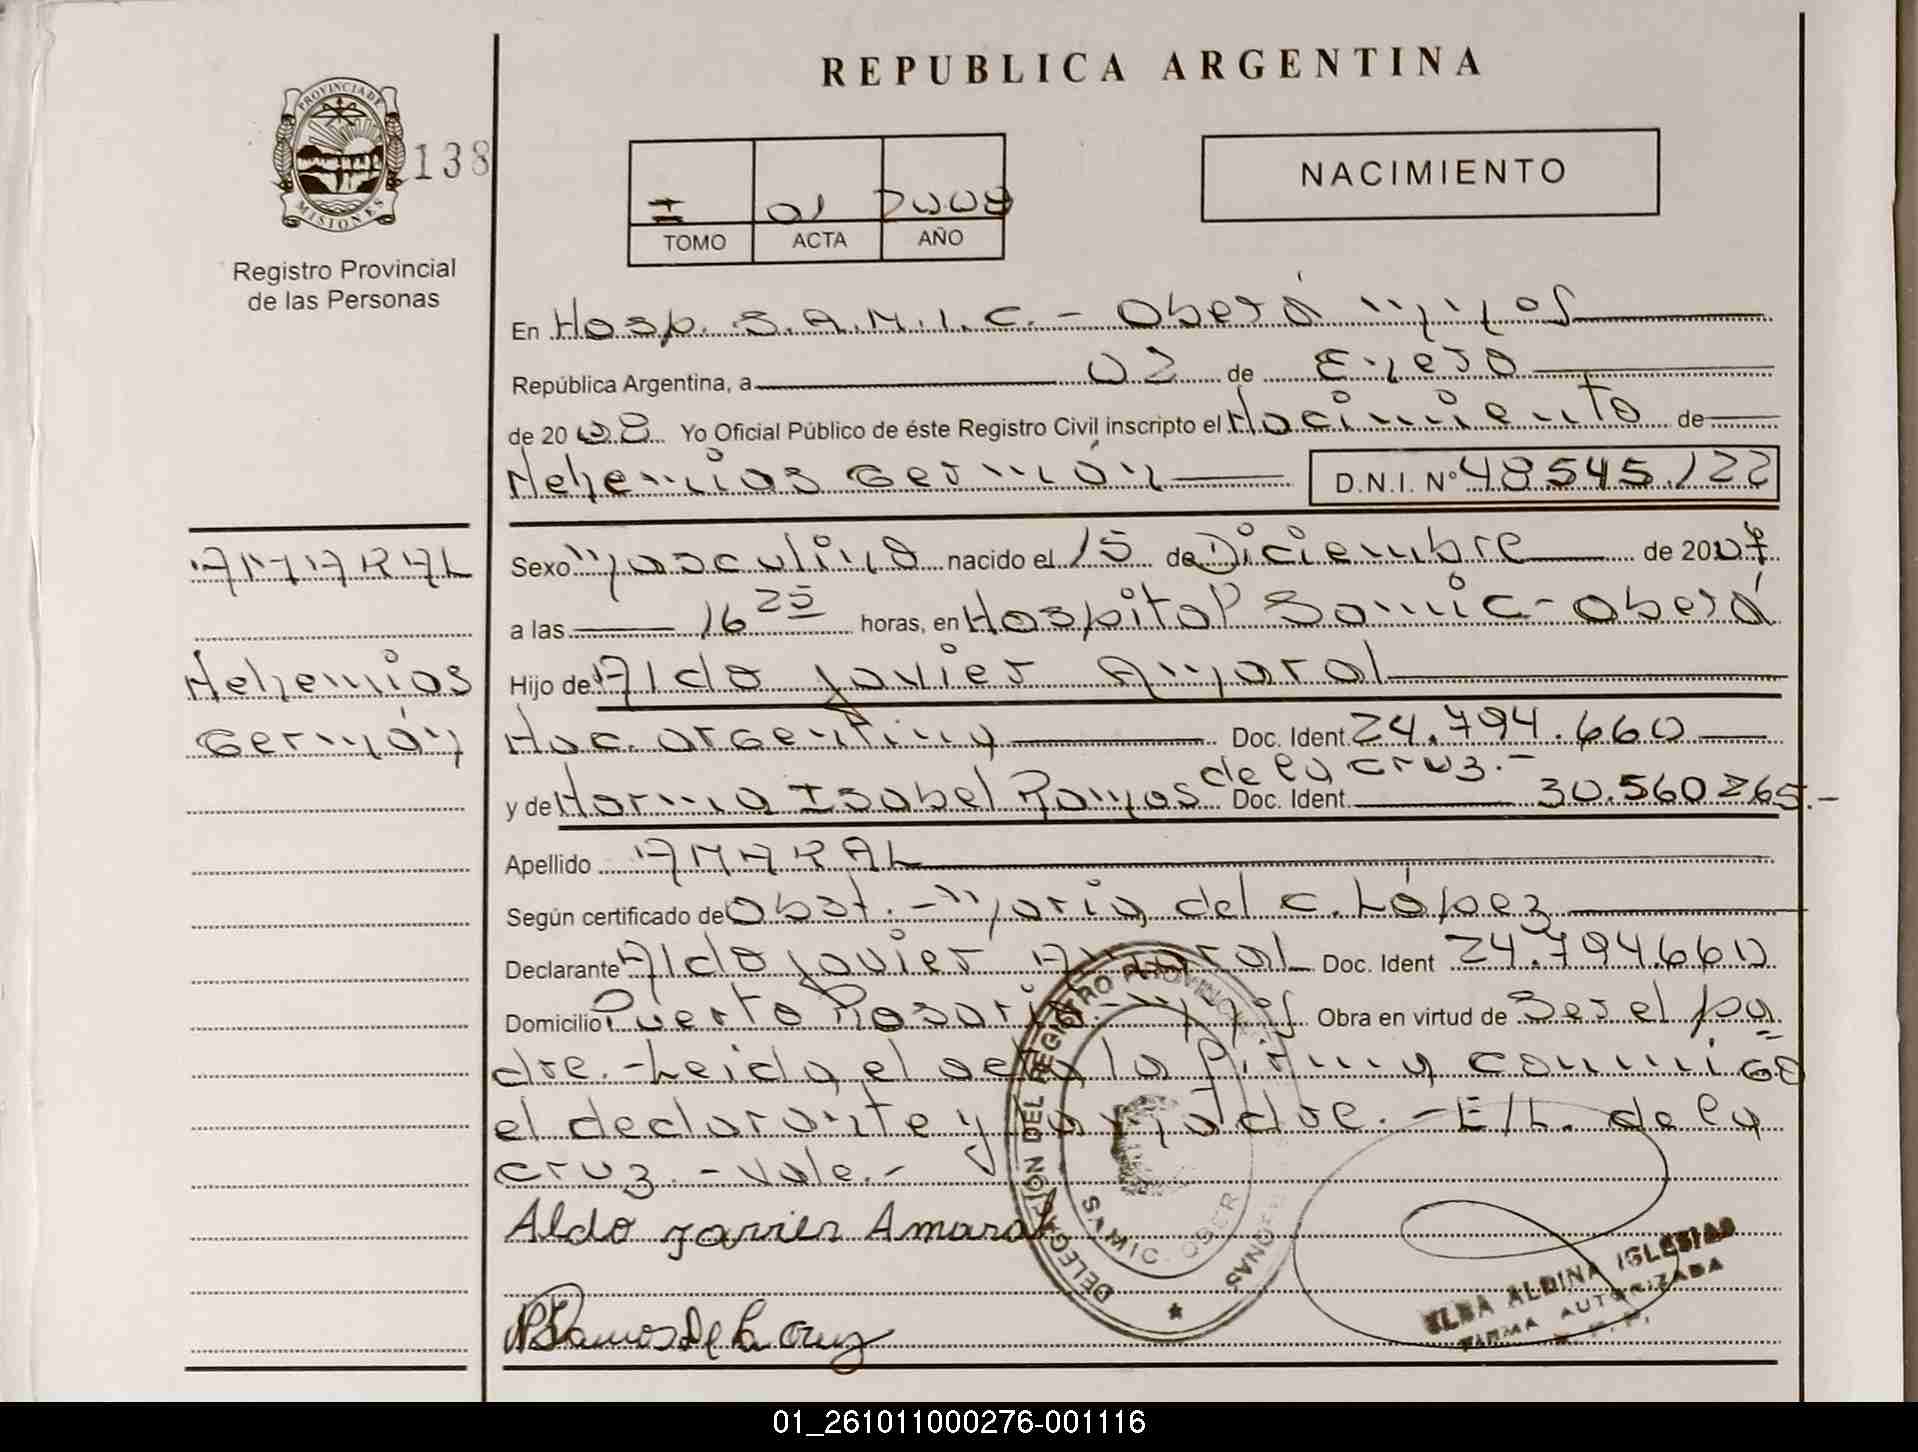 REPUBLICA ARGENTINA
PROVINCIA DE
MISIONES
138
Registro Provincial
de las Personas
I 01 2008
TOMO ACTA AÑO
NACIMIENTO
En Hosp. S.A.M.I.C. - Oberá Mnes
República Argentina, a 02 de Enero
de 2008 Yo Oficial Público de éste Registro Civil inscripto el Nacimiento de
Nehemias Germán D.N.I. Nº 48545.122
AMARAL
Nehemias
Germán
Sexo Masculino nacido el 15 de Diciembre de 2007
a las 16 25 horas, en Hospital Samic - Oberá
Hijo de Aldo Javier Amaral
Nac. Argentina Doc. Ident 24.794.660
de la Cruz.-
y de Norma Isabel Ramos Doc. Ident. 30.560265.-
Apellido AMARAL
Según certificado de Obst. - Maria del C. López
Declarante Aldo Javier Amaral Doc. Ident 24.794.660
Domicilio Puerto Rosario - Mnes Obra en virtud de Ser el pa
dre. - Leida el acta la firma conmigo
el declarante y la madre. - E/L. de la
Cruz. - Vale. -
Aldo Javier Amaral
NI Ramos De la Cruz
DELEGACION DEL REGISTRO PROVINCIAL
SAMIC
ELBA ALDINA IGLESIAS
FIRMA AUTORIZADA
01_261011000276-001116